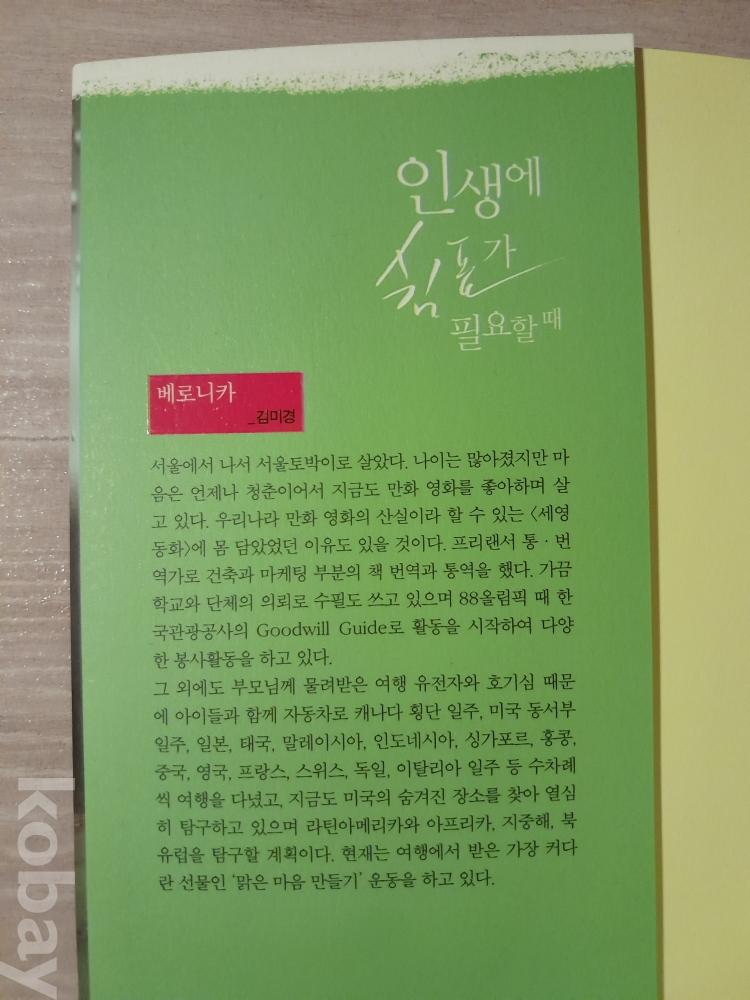 인생에
쉼표가
필요할 때
베로니카
_김미경
서울에서 나서 서울토박이로 살았다. 나이는 많아졌지만 마
음은 언제나 청춘이어서 지금도 만화 영화를 좋아하며 살
고 있다. 우리나라 만화 영화의 산실이라 할 수 있는 〈세영
동화〉에 몸 담았었던 이유도 있을 것이다. 프리랜서 통·번
역가로 건축과 마케팅 부분의 책 번역과 통역을 했다. 가끔
학교와 단체의 의뢰로 수필도 쓰고 있으며 88올림픽 때 한
국관광공사의 Goodwill Guide로 활동을 시작하여 다양
한 봉사활동을 하고 있다.
그 외에도 부모님께 물려받은 여행 유전자와 호기심 때문
에 아이들과 함께 자동차로 캐나다 횡단 일주, 미국 동서부
일주, 일본, 태국, 말레이시아, 인도네시아, 싱가포르, 홍콩,
중국, 영국, 프랑스, 스위스, 독일, 이탈리아 일주 등 수차례
씩 여행을 다녔고, 지금도 미국의 숨겨진 장소를 찾아 열심
히 탐구하고 있으며 라틴아메리카와 아프리카, 지중해, 북
유럽을 탐구할 계획이다. 현재는 여행에서 받은 가장 커다
란 선물인 ‘맑은 마음 만들기’ 운동을 하고 있다.
kobay